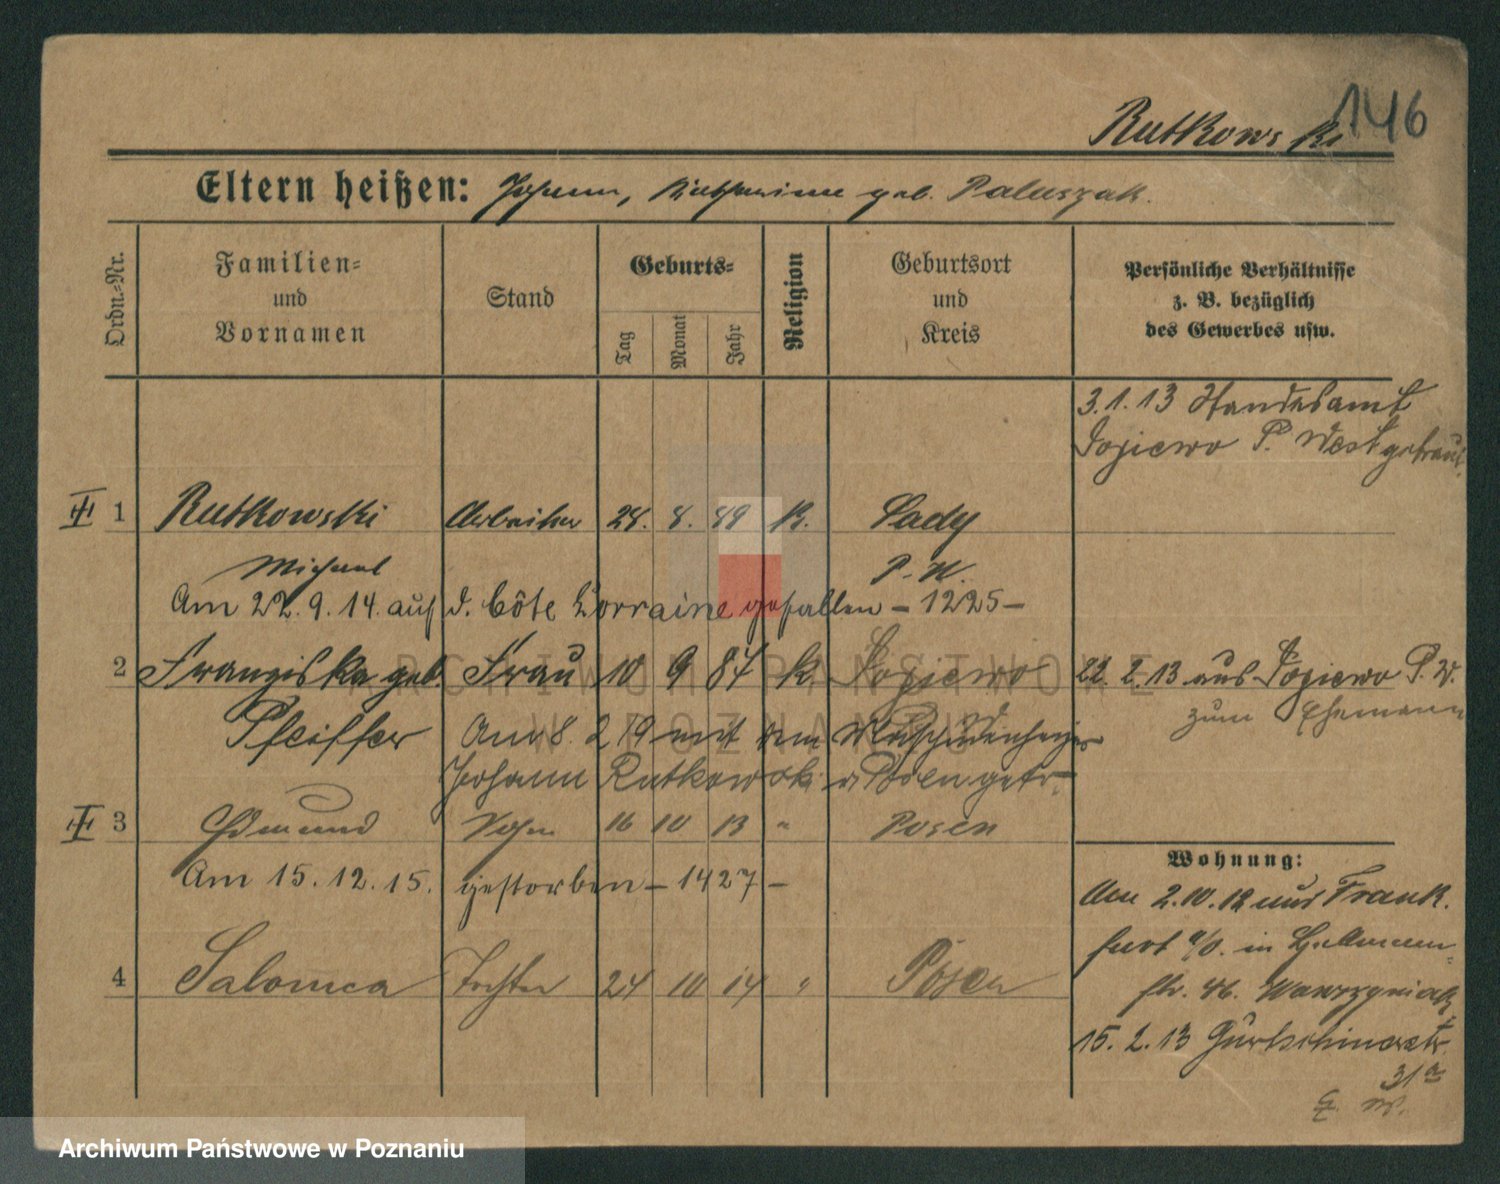 146
Rutkowski
Eltern heißen: Johann, Katharina geb. Paluszak.
Ordn.-Nr.
Familien-
und
Vornamen
Stand
Geburts-
Tag
Monat
Jahr
Religion
Geburtsort
und
Kreis
Persönliche Verhältnisse
z. B. bezüglich
des Gewerbes usw.
3.1.13 Standesamt
P. West getraut.
1 Rutkowski Arbeiter 28. 8. 89 K. Sady
Michael P. W.
Am 22.9.14. auf d. Côte Lorraine gefallen – 1225 –
2 Franziska geb. Frau 10 9 84 k.
22. 2. 13 aus P. W.
zum Ehemann
Pfeiffer Am 8. 2 19 mit dem
Johann Rutkowski in Posen getr.
3 Edmund Sohn 16 10 13 " Posen
Am 15.12.15. gestorben – 1427 –
4 Salomea Tochter 24 10 14 " Posen
Wohnung:
Am 2.10.12 aus Frank-
furt a/O. in
str. 46. Wawrzyniak
15. 2. 13 Gurtschinerstr.
31a
ARCHIWUM PAŃSTWOWE
W POZNANIU
Archiwum Państwowe w Poznaniu